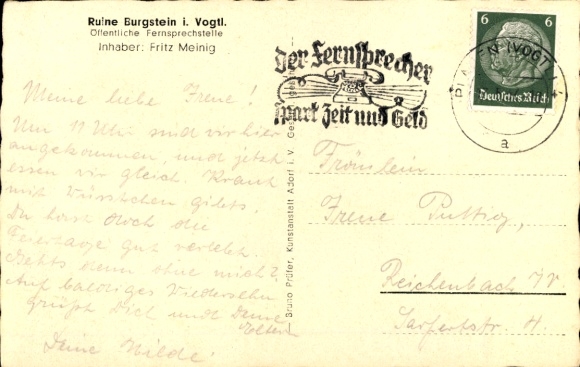 Ruine Burgstein i. Vogtl.
Öffentliche Fernsprechstelle
Inhaber: Fritz Meinig
Meine liebe Irene!
Um 11 Uhr sind wir hier
angekommen, und jetzt
essen wir gleich. Kraut
mit Würstchen gibts.
Du hast doch die
Feiertage gut verlebt.
Gehts denn ohne mich?
Auf baldiges Wiedersehn
grüßt Dich und Deine
Eltern
Deine Hilde!
Bruno Prüfer, Kunstanstalt Adorf i. V.
der Fernsprecher
spart Zeit und Geld
6 6
Deutsches Reich
PLAUEN (VOGTL)
a
Fräulein
Irene Puttig,
Reichenbach i/V.
Sarfertstr. 4